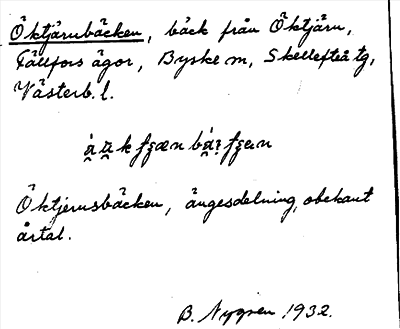 Öktjärnbäcken, bäck från Öktjärn,
Fällfors ägor, Byske m, Skellefteå tg,
Västerb. l.
Öktjernsbäcken, ängesdelning, obekant
årtal.
B. Nygren 1932.